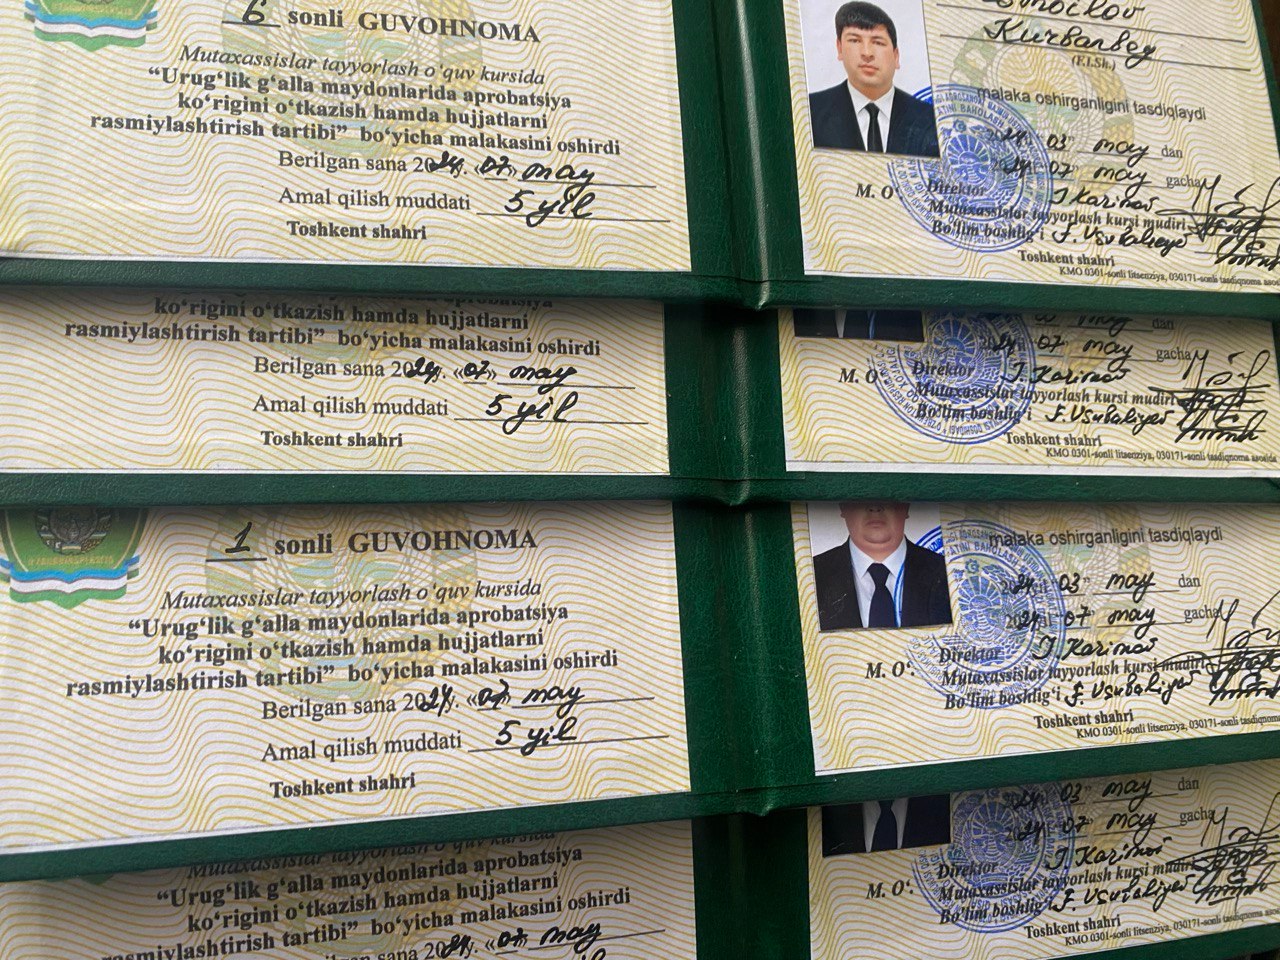 6 sonli GUVOHNOMA
Mutaxassislar tayyorlash o'quv kursida
“Urug‘lik g‘alla maydonlarida aprobatsiya
ko‘rigini o‘tkazish hamda hujjatlarni
rasmiylashtirish tartibi” bo‘yicha malakasini oshirdi
Berilgan sana 2024y. «07» may
Amal qilish muddati 5 yil
Toshkent shahri
Kurbanbeg
(F.I.Sh.)
malaka oshirganligini tasdiqlaydi
03 may dan
07 may gacha
M. O‘ Direktor I Karimov
Mutaxassislar tayyorlash kursi mudiri
Bo'lim boshlig'i F. Usubaliyev
Toshkent shahri
KMO 0301-sonli litsenziya, 030171-sonli tasdiqnoma
ko‘rigini o‘tkazish hamda hujjatlarni
rasmiylashtirish tartibi” bo‘yicha malakasini oshirdi
Berilgan sana 2024y. «07» may
Amal qilish muddati 5 yil
Toshkent shahri
may dan
07 may gacha
M. O‘ Direktor I. Karimov
Mutaxassislar tayyorlash kursi mudiri
Bo'lim boshlig'i F. Usubaliyev
Toshkent shahri
KMO 0301-sonli litsenziya, 030171-sonli tasdiqnoma asosida
1 sonli GUVOHNOMA
Mutaxassislar tayyorlash o'quv kursida
“Urug‘lik g‘alla maydonlarida aprobatsiya
ko‘rigini o‘tkazish hamda hujjatlarni
rasmiylashtirish tartibi” bo‘yicha malakasini oshirdi
Berilgan sana 2024y. «07» may
Amal qilish muddati 5 yil
Toshkent shahri
malaka oshirganligini tasdiqlaydi
03 may dan
07 may gacha
M. O‘. Direktor I Karimov
Mutaxassislar tayyorlash kursi mudiri
Bo'lim boshlig'i F. Usubaliyev
Toshkent shahri
KMO 0301-sonli litsenziya, 030171-sonli tasdiqnoma
Mutaxassislar tayyorlash o'quv kursida
“Urug‘lik g‘alla maydonlarida aprobatsiya
ko‘rigini o‘tkazish hamda hujjatlarni
rasmiylashtirish tartibi” bo‘yicha malakasini oshirdi
sana 2024y. «07» may
03 may dan
07 may gacha
M. O‘. Direktor I Karimov
Mutaxassislar tayyorlash kursi mudiri
Bo'lim boshlig'i F. Usubaliyev
Toshkent shahri
KMO 0301-sonli litsenziya, 030171-sonli tasdiqnoma